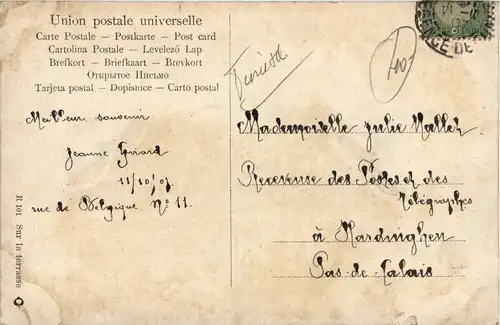 Union postale universelle
Carte Postale – Postkarte – Post card
Cartolina Postale – Levelező Lap
Brefkort – Briefkaart – Brevkort
Открытое Письмо
Tarjeta postal – Dopisnice – Carto postal
Meilleur souvenir
Jeanne Girard
11/10/07
rue de Belgique N° 11
Mademoiselle Julie Mallet
Receveuse des Postes et des
Télégraphes
à Hardinghen
Pas-de-Calais
R 101 Sur la terrasse